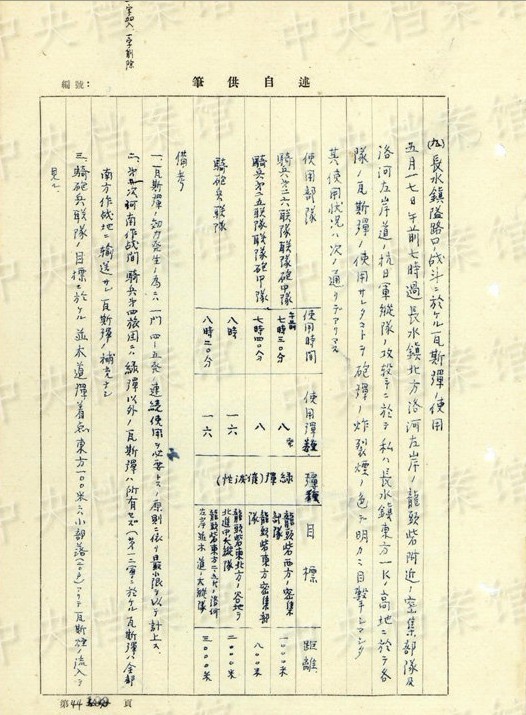 一字加入 一字削除
編號：
筆供述自
(九) 長水鎮隘路口ノ战斗ニ於ケル瓦斯彈ノ使用
五月一七日午前七時過長水鎮北方洛河左岸ノ龍頭砦附近ノ密集部隊及
洛河左岸道ノ抗日軍縦隊ノ攻撃ニ於テ私ハ長水鎮東方一K ノ高地ニ於テ各
隊ノ瓦斯彈ノ使用サレタコトヲ砲彈ノ炸裂煙ノ色デ明カニ目撃シマシタ
其ノ使用状況ハ次ノ通リデアリマス
使用部隊 使用時間 使用彈數 彈種 目標 距離
騎兵第二六联隊联隊砲中隊 午前七時三〇分 八 龍頭砦西方ノ密集部隊 一〇〇〇米
騎兵第二五联隊联隊砲中隊 七時四〇分 八 緑彈(催涙性) 龍頭砦東方密集部隊 八〇〇米
騎砲兵联隊 八時 一六 龍頭砦東北方ノ谷地ヲ北進中ノ大縦隊 二〇〇〇米
八時二〇分 一六 龍頭砦東方 洛河左岸並木道ノ大縦隊 三〇〇〇米
備考
一、瓦斯彈ノ効力発生ノ為ニハ一門四—五発ノ連続使用ヲ必要トス 原則ニ依リ最小限ヲ以テ計上ス
二、第 次河南作战间騎兵第四旅团ハ緑彈以外ノ瓦斯彈ハ所有セズ 於ケル瓦斯彈ハ全部
南方作战地ニ輸送サレ瓦斯彈ノ補充ナシ
三、騎砲兵联隊ノ目標ニ於ケル並木道彈着点東方一〇〇米ニ小部落 アリテ瓦斯煙ノ流入ヲ
見ル
第 44 頁
中央档案馆